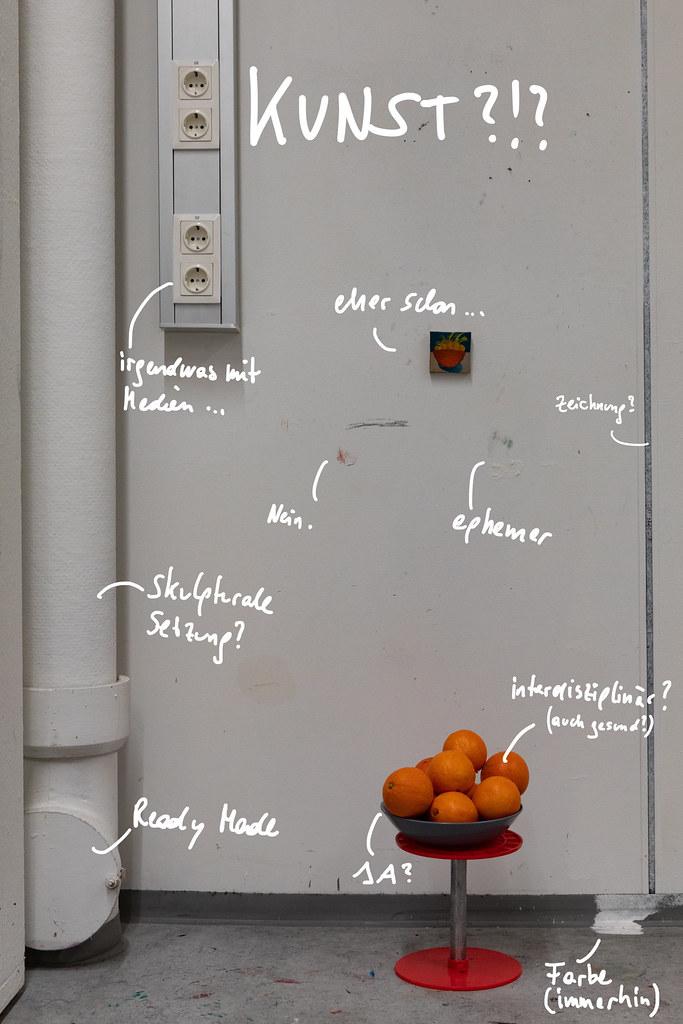 KUNST?!?
eher schon ...
irgendwas mit
Medien ...
Zeichnung?
Nein.
ephemer
Skulpturale
Setzung?
interdisziplinär?
(auch gesund?)
Ready Made
1A?
Farbe
(immerhin)